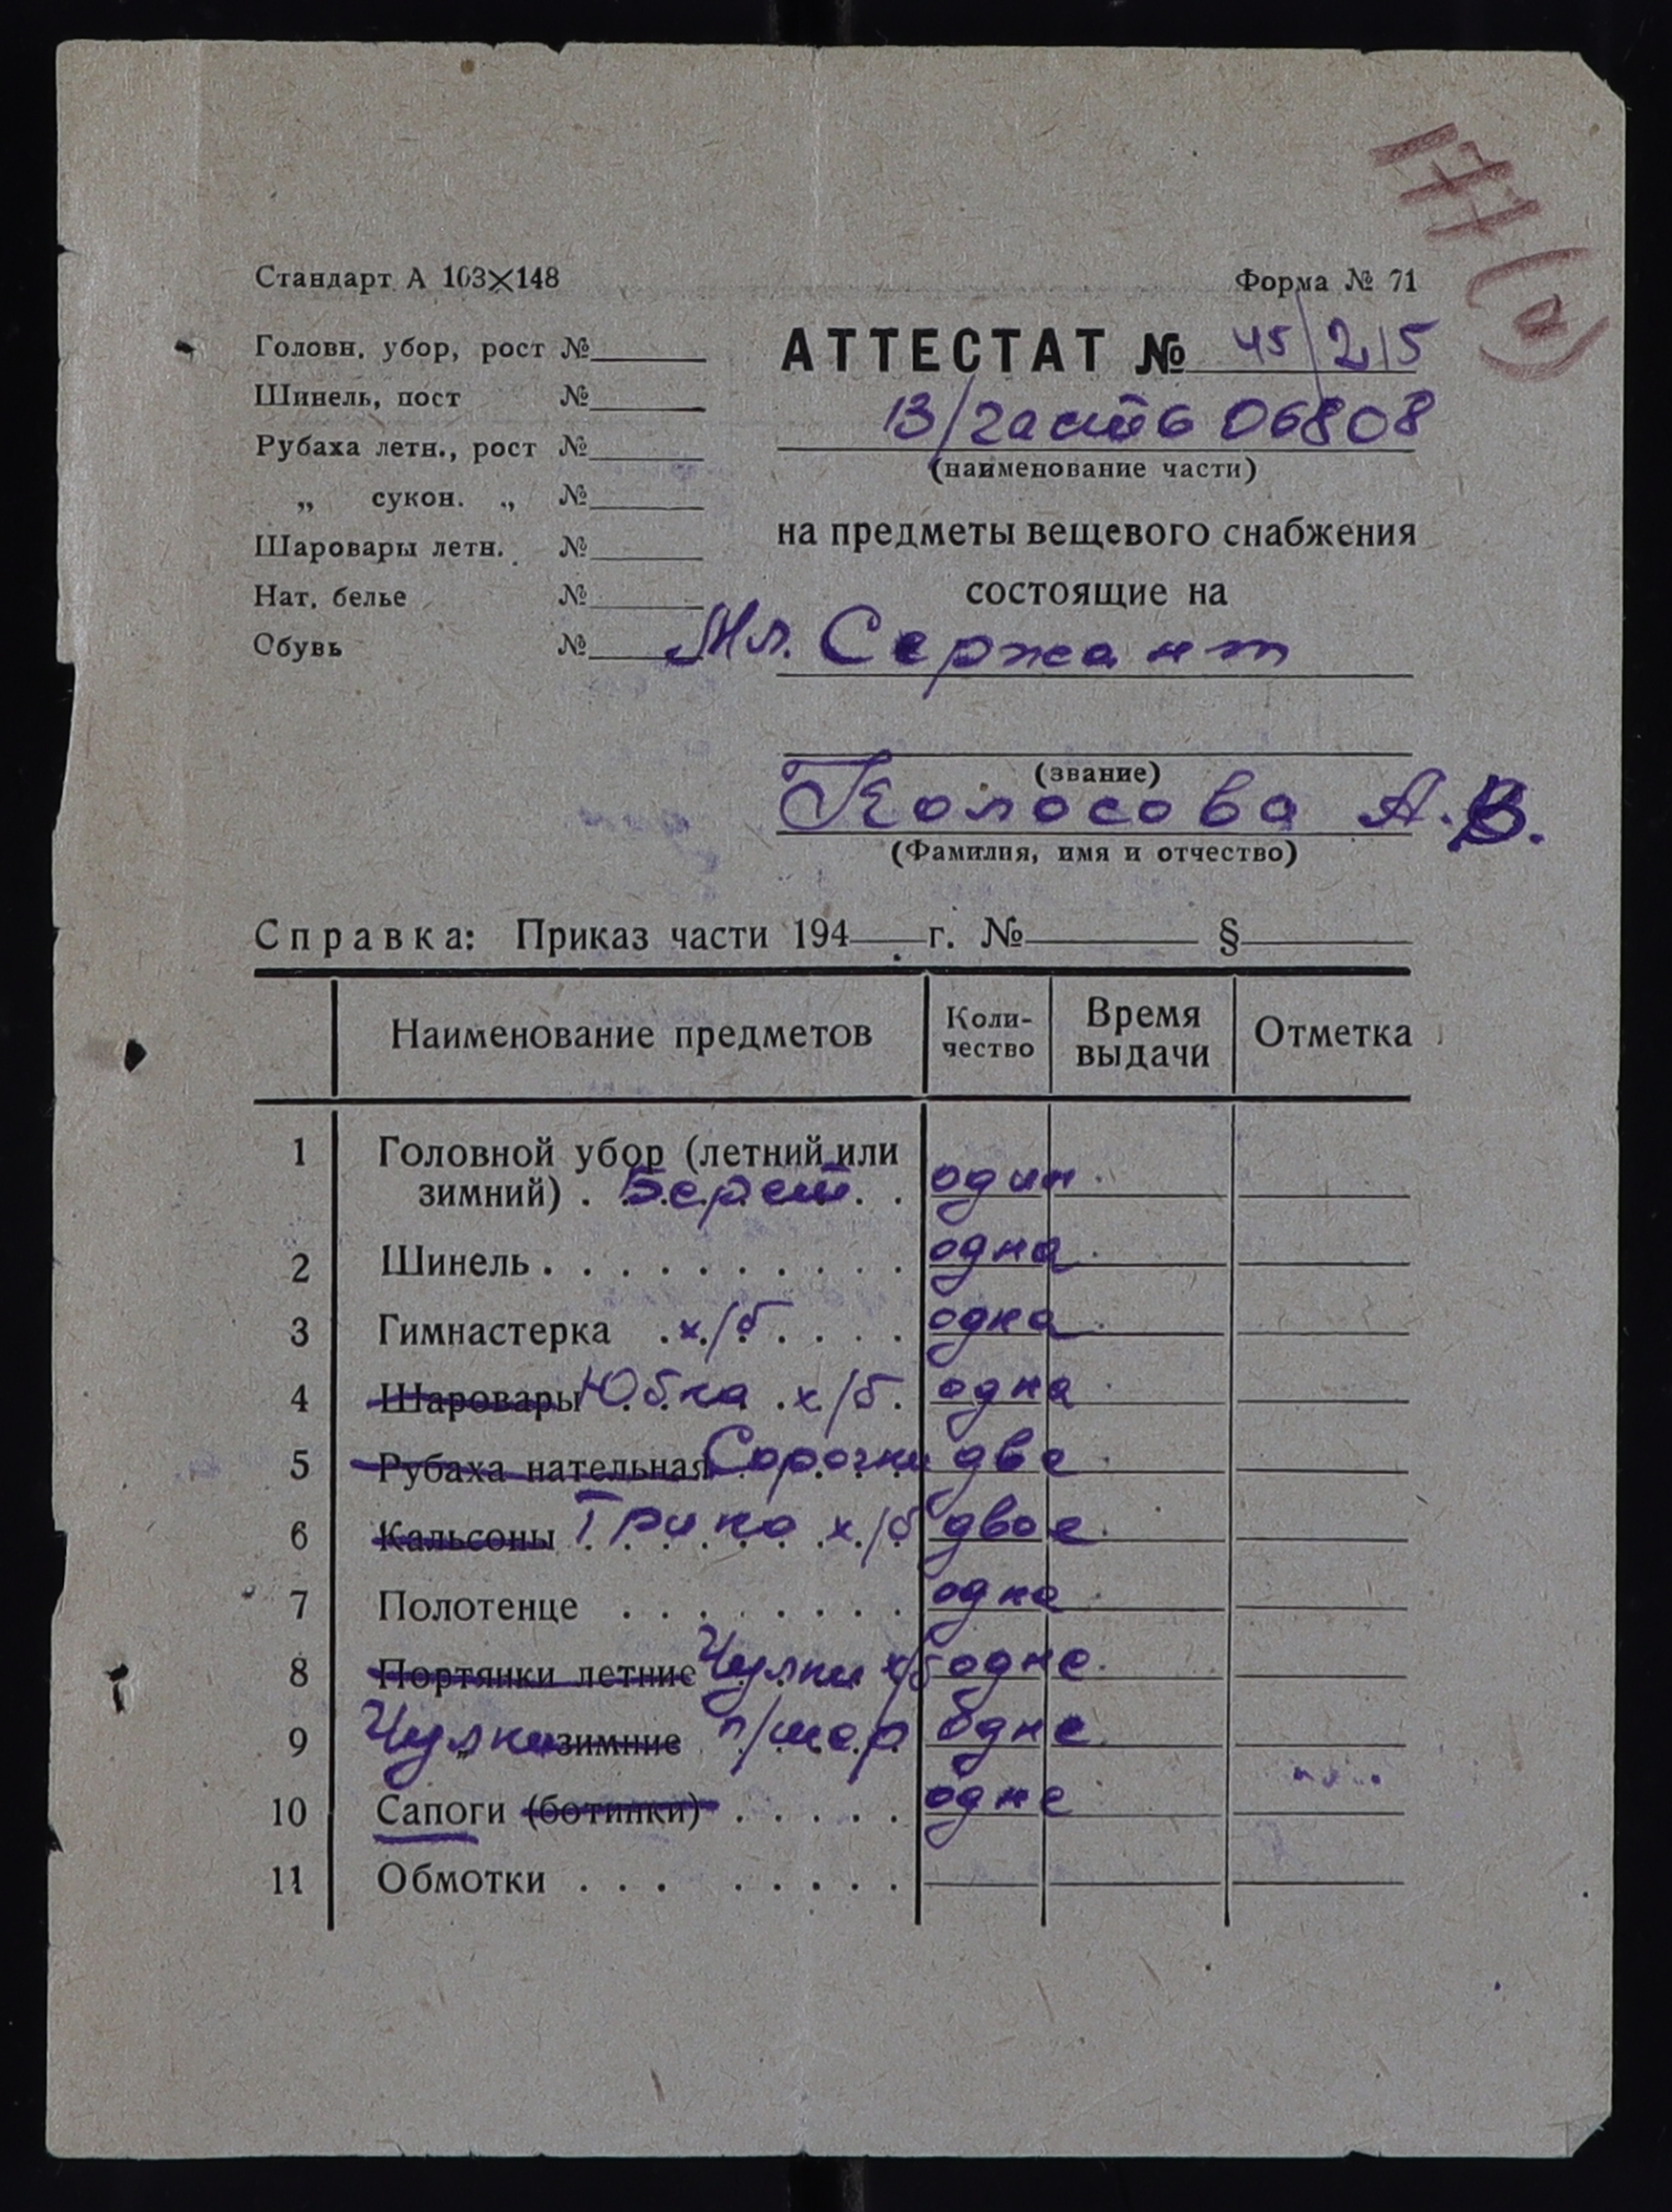 177(а)
Стандарт А 103×148
Форма № 71
Головн. убор, рост №
Шинель, пост №
Рубаха летн., рост №
„ сукон. „ №
Шаровары летн. №
Нат. белье №
Обувь №
АТТЕСТАТ № 45/215
В/часть 06808
(наименование части)
на предметы вещевого снабжения
состоящие на
Мл. Сержант
(звание)
Колосова А.В.
(Фамилия, имя и отчество)
Справка: Приказ части 194 г. № §
Наименование предметов Коли-чество Время выдачи Отметка
1 Головной убор (летний или
зимний) . Берет . . один
2 Шинель . . . . . . . . . . одна
3 Гимнастерка . х/б . . . . одна
4 Шаровары Юбка х/б. одна
5 Рубаха нательная Сорочки две
6 Кальсоны Трико х/б двое
7 Полотенце . . . . . . . . одна
8 Портянки летние Чулки х/б одне
9 Чулки „ зимние п/шер одне
10 Сапоги (ботинки) . . . . . одне
11 Обмотки . . . . . . . .